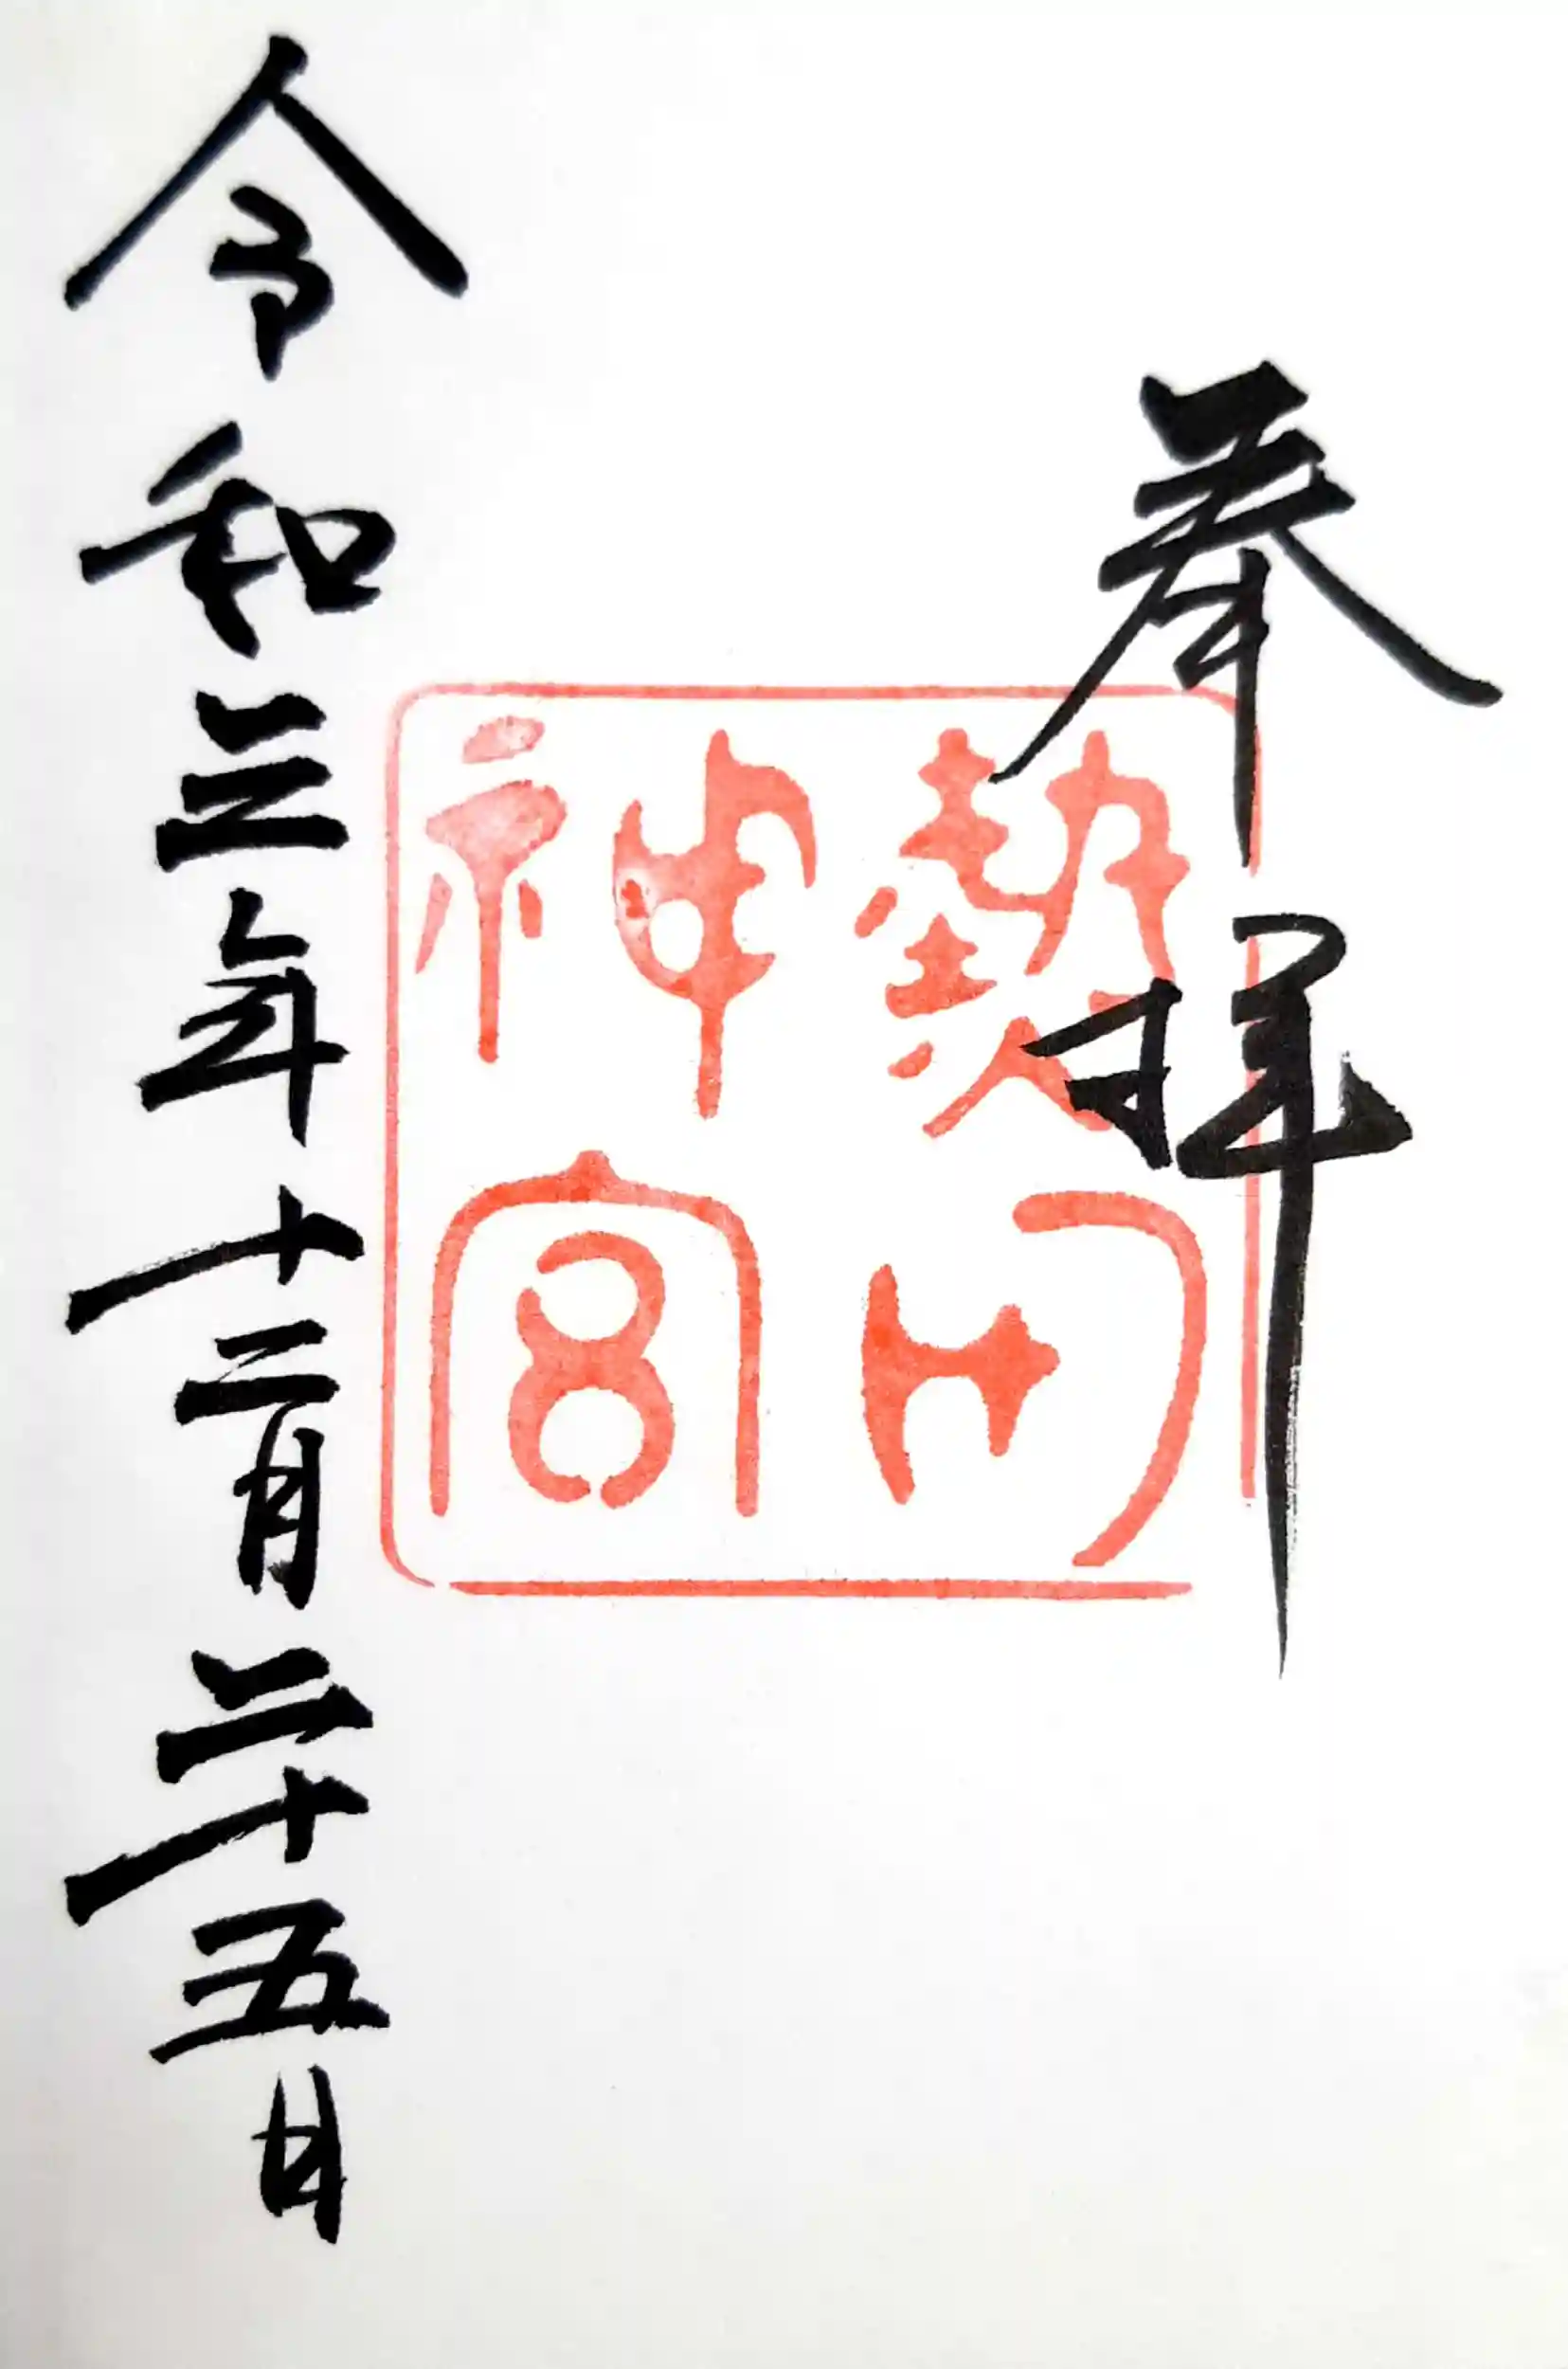 奉拝
熱田
神宮
令和三年十二月二十五日